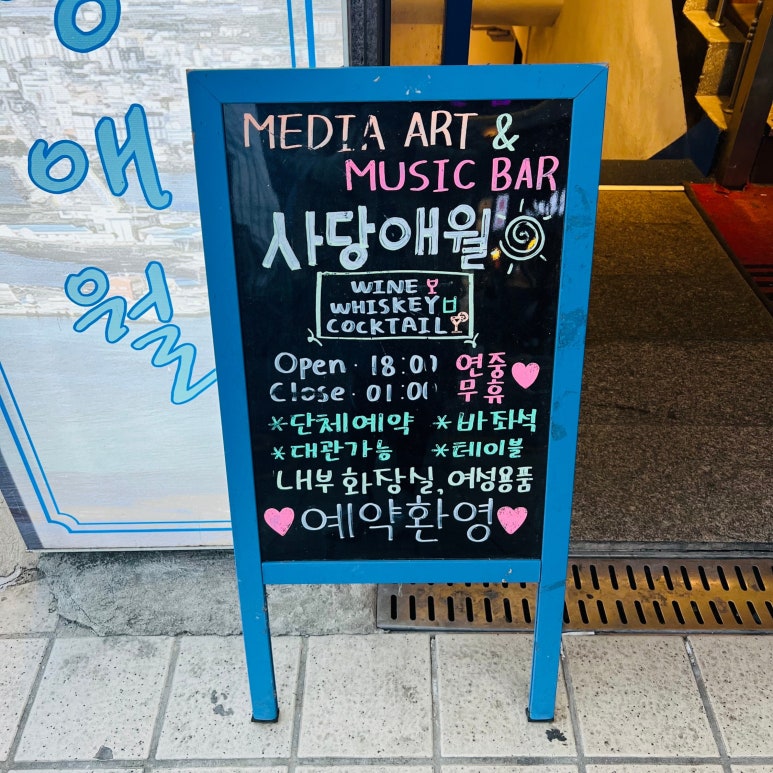 애월
MEDIA ART &
MUSIC BAR
사당애월
WINE
WHISKEY
COCKTAIL
Open · 18:00 연중
Close · 01:00 무휴
*단체예약 *바좌석
*대관가능 *테이블
내부화장실, 여성용품
예약환영